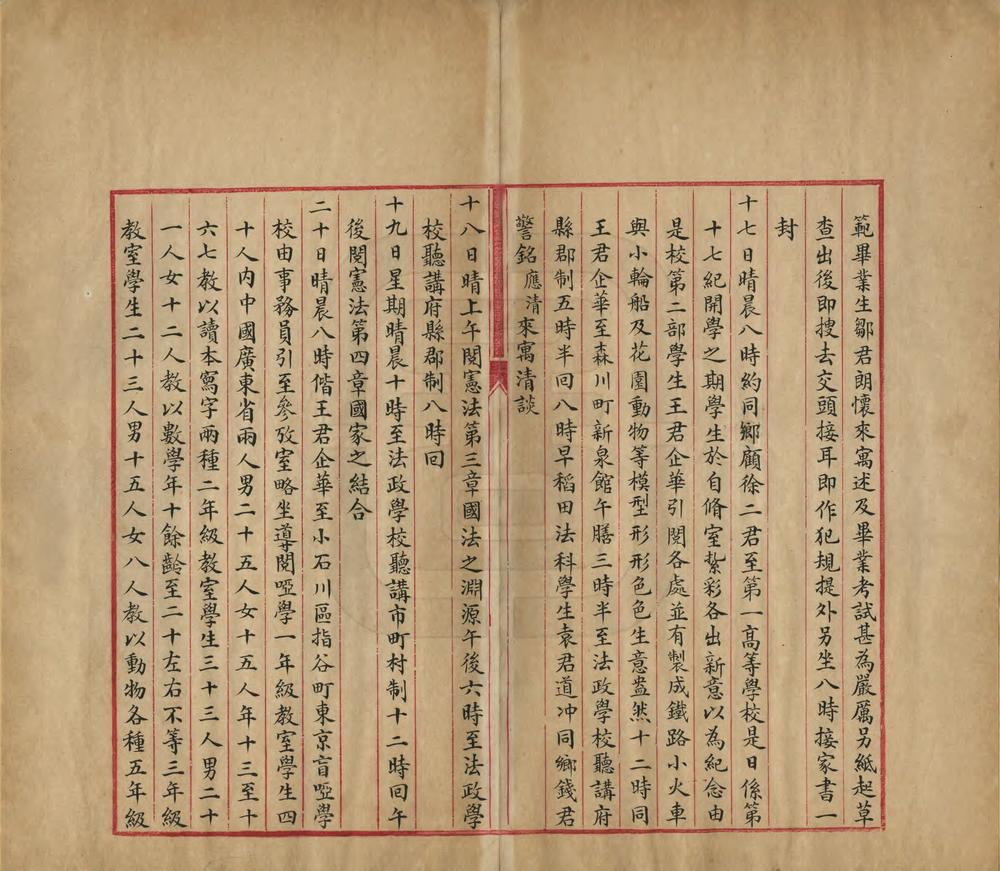 範畢業生鄒君朗懷來寓述及畢業考試甚為嚴厲另紙起草
查出後即搜去交頭接耳即作犯規提外另坐八時接家書一
封
十七日晴晨八時約同鄉顧徐二君至第一高等學校是日係第
十七紀開學之期學生於自脩室紮彩各出新意以為紀念由
是校第二部學生王君企華引閱各處並有製成鐵路小火車
與小輪船及花園動物等模型形形色色生意盎然十二時同
王君企華至森川町新泉館午膳三時半至法政學校聽講府
縣郡制五時半回八時早稻田法科學生袁君道冲同鄉錢君
警銘應清來寓清談
十八日晴上午閱憲法第三章國法之淵源午後六時至法政學
校聽講府縣郡制八時回
十九日星期晴晨十時至法政學校聽講市町村制十二時回午
後閱憲法第四章國家之結合
二十日晴晨八時偕王君企華至小石川區指谷町東京盲啞學
校由事務員引至參攷室略坐導閱啞學一年級教室學生四
十人內中國廣東省兩人男二十五人女十五人年十三至十
六七教以讀本寫字兩種二年級教室學生三十三人男二十
一人女十二人教以數學年十餘齡至二十左右不等三年級
教室學生二十三人男十五人女八人教以動物各種五年級